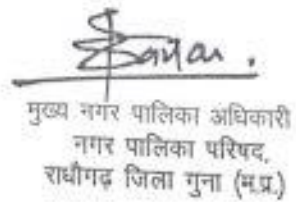 मुख्य नगर पालिका अधिकारी
नगर पालिका परिषद,
राधौगढ़ जिला गुना (म.प्र.)